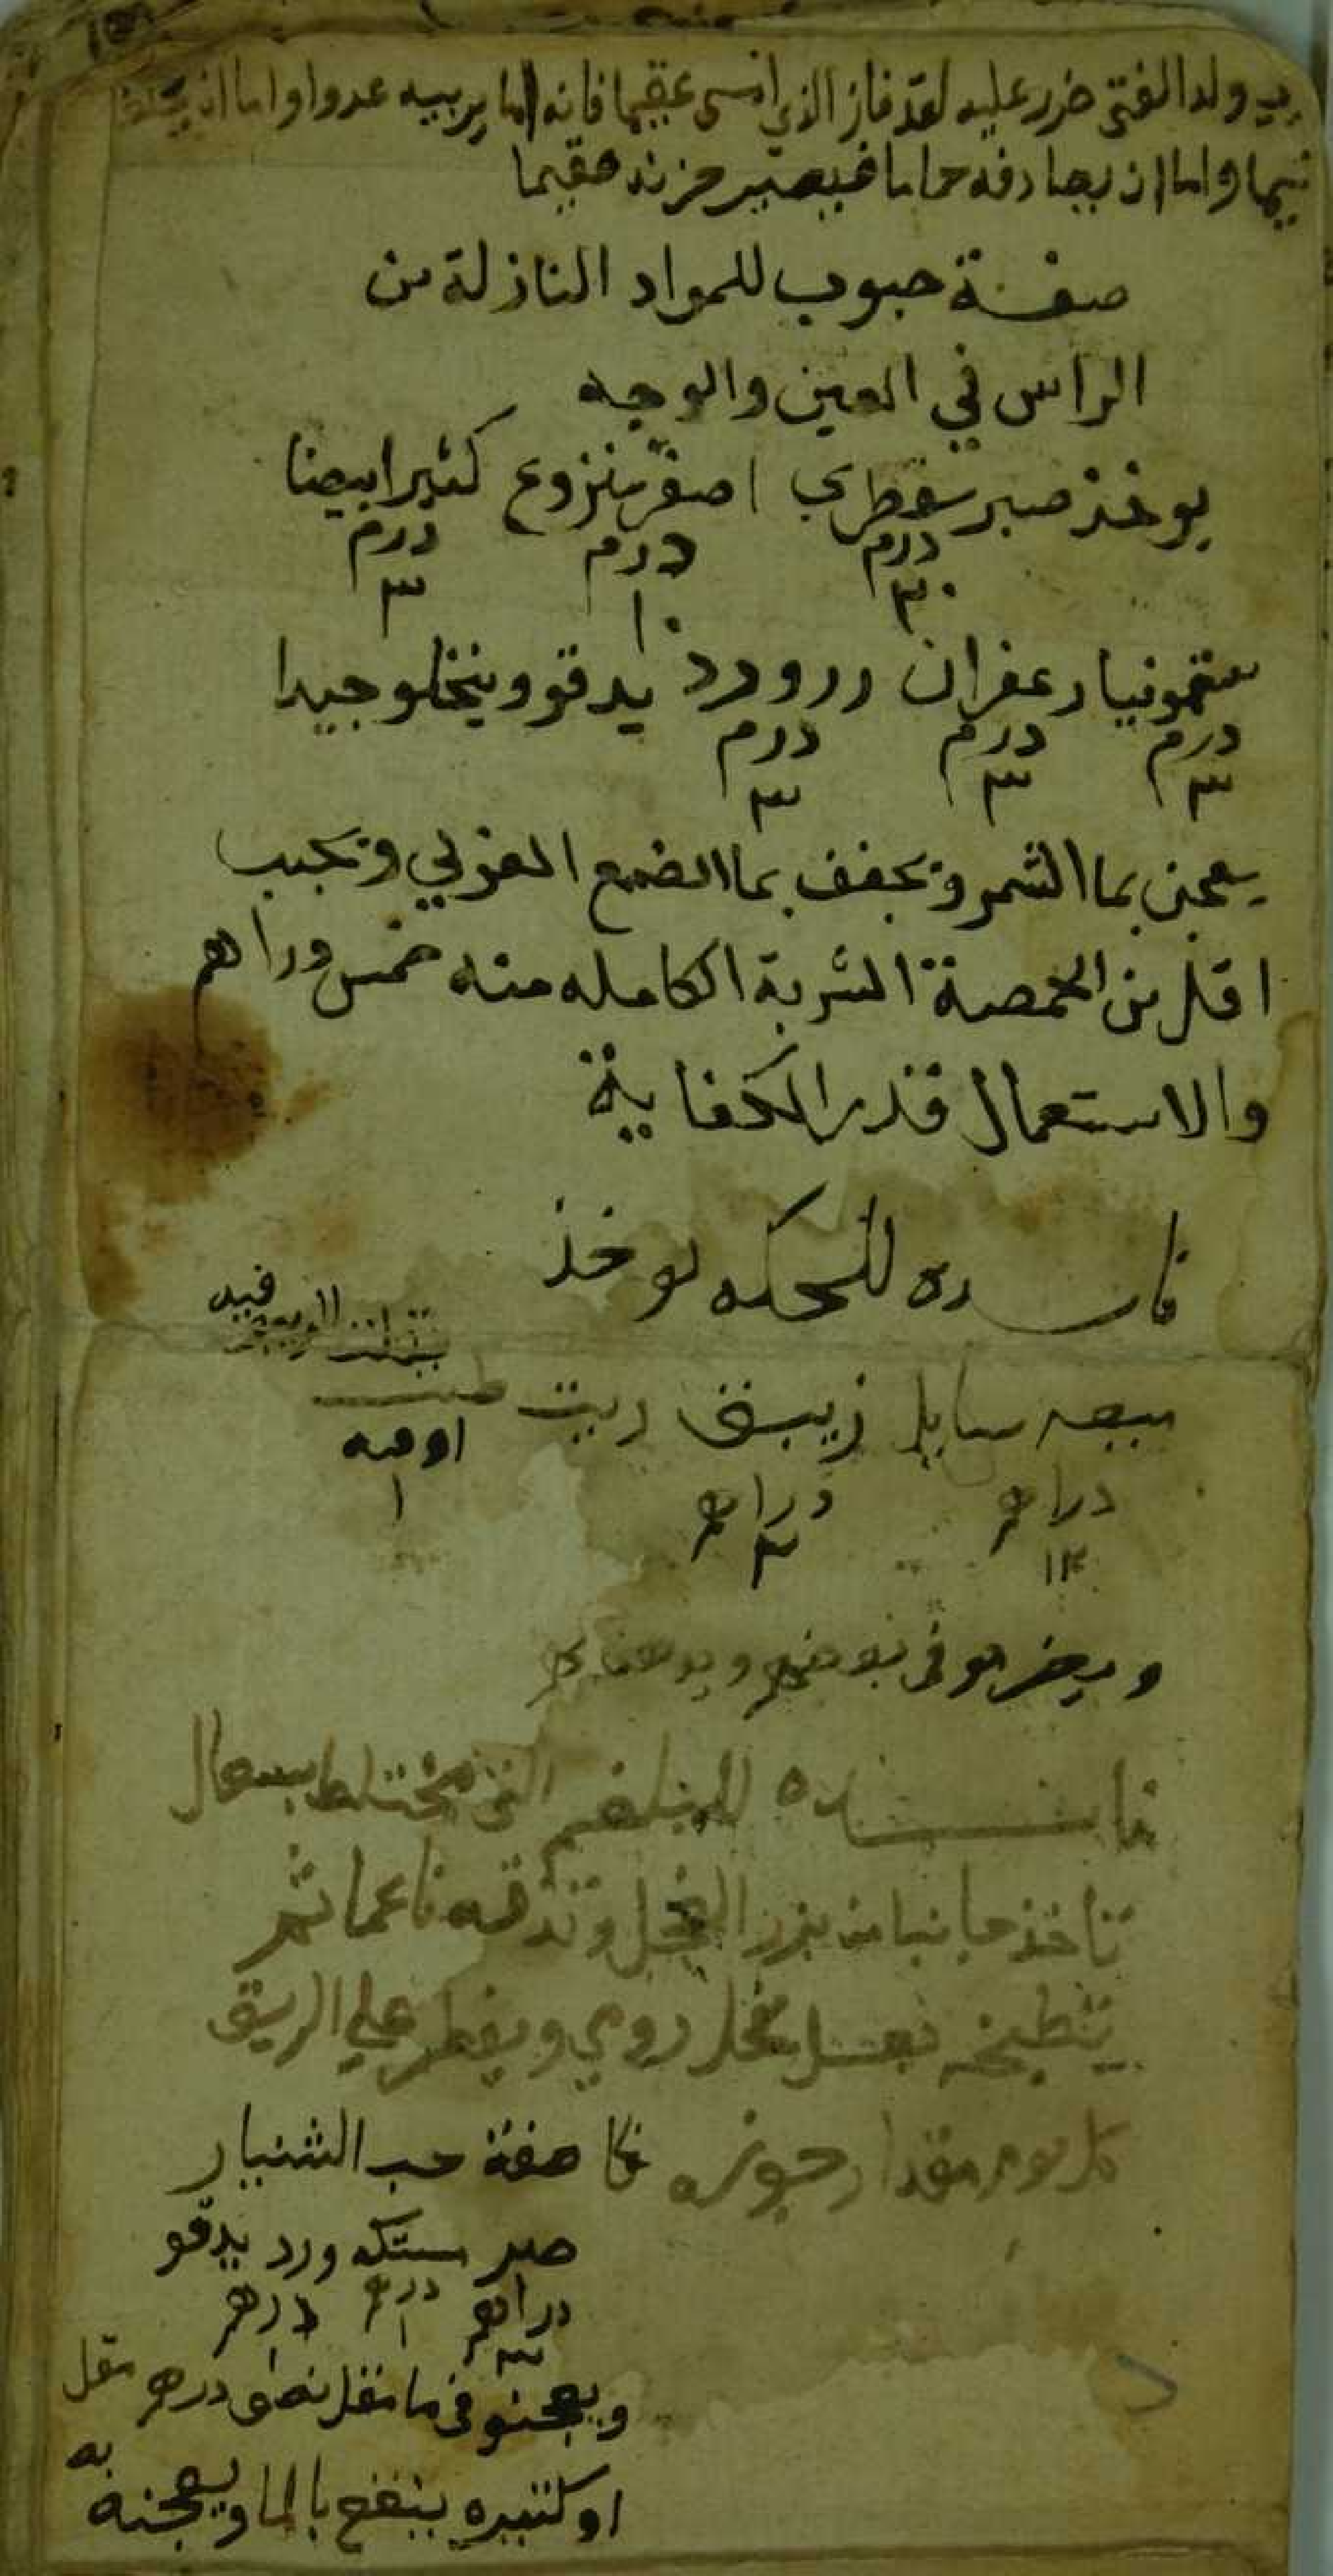 ولد الفتى ضرر عليه لقد فاز الذي امسى عقيما فانه اما يربيه عدوا واما ان
يتيما واما ان يصادفه حماما فيصير حزنه مقيما
صفة حبوب للمواد النازلة من
الراس في العين والوجه
يوخذ صبر سقطري اصفر منزوع كثيرا بيضا
درم ٣٠ درم ١٠ درم ٣
سقمونيا زعفران زر ورد يدقو وينخلو جيدا
درم ٣ درم ٣ درم ٣
يعجن بما الشمر وتجفف بما الضمع العربي وتحبب
اقل من الحمصة الشربة الكامله منه خمس دراهم
والاستعمال قدر الكفاية
فايده للحكه يوخذ
فيه
ميعه سايله زيبق زيت طيب
دراهم ١٢ دراهم ٣ اوقيه ١
فايده للبلغم الذي مختلط بسعال
تاخذ جانبا من بزر الفجل وتدقه ناعما ثم
تطبخه بعسل نحل رومي ويفطر علي الريق
كل يوم مقدار جوزه صفة حب الشنيار
صبر مستكه ورد يدقو
دراهم ٣ درهم ١ درهم ١
ويعجنو في ما مقل نصف درهم مقل
او كتيره ينقع بالما ويعجنه به